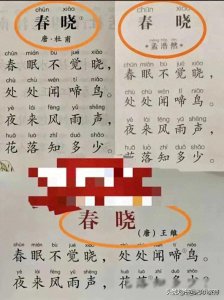 chūn xiǎo
春晓
唐·杜甫
chūn mián bù jué xiǎo
春眠不觉晓，
chù chù wén tí niǎo
处处闻啼鸟。
yè lái fēng yǔ shēng
夜来风雨声，
huā luò zhī duō shǎo
花落知多少。
chūn xiǎo
春晓
孟浩然
chūn mián bù jué xiǎo
春眠不觉晓，
chù chù wén tí niǎo
处处闻啼鸟。
yè lái fēng yǔ shēng
夜来风雨声，
huā luò zhī duō shǎo
花落知多少。
春晓
（唐）王维
chūn mián bù jué xiǎo chù chù wén tí niǎo
春眠不觉晓，处处闻啼鸟。
yè lái fēng yǔ shēng
夜来风雨声，花落知多少。